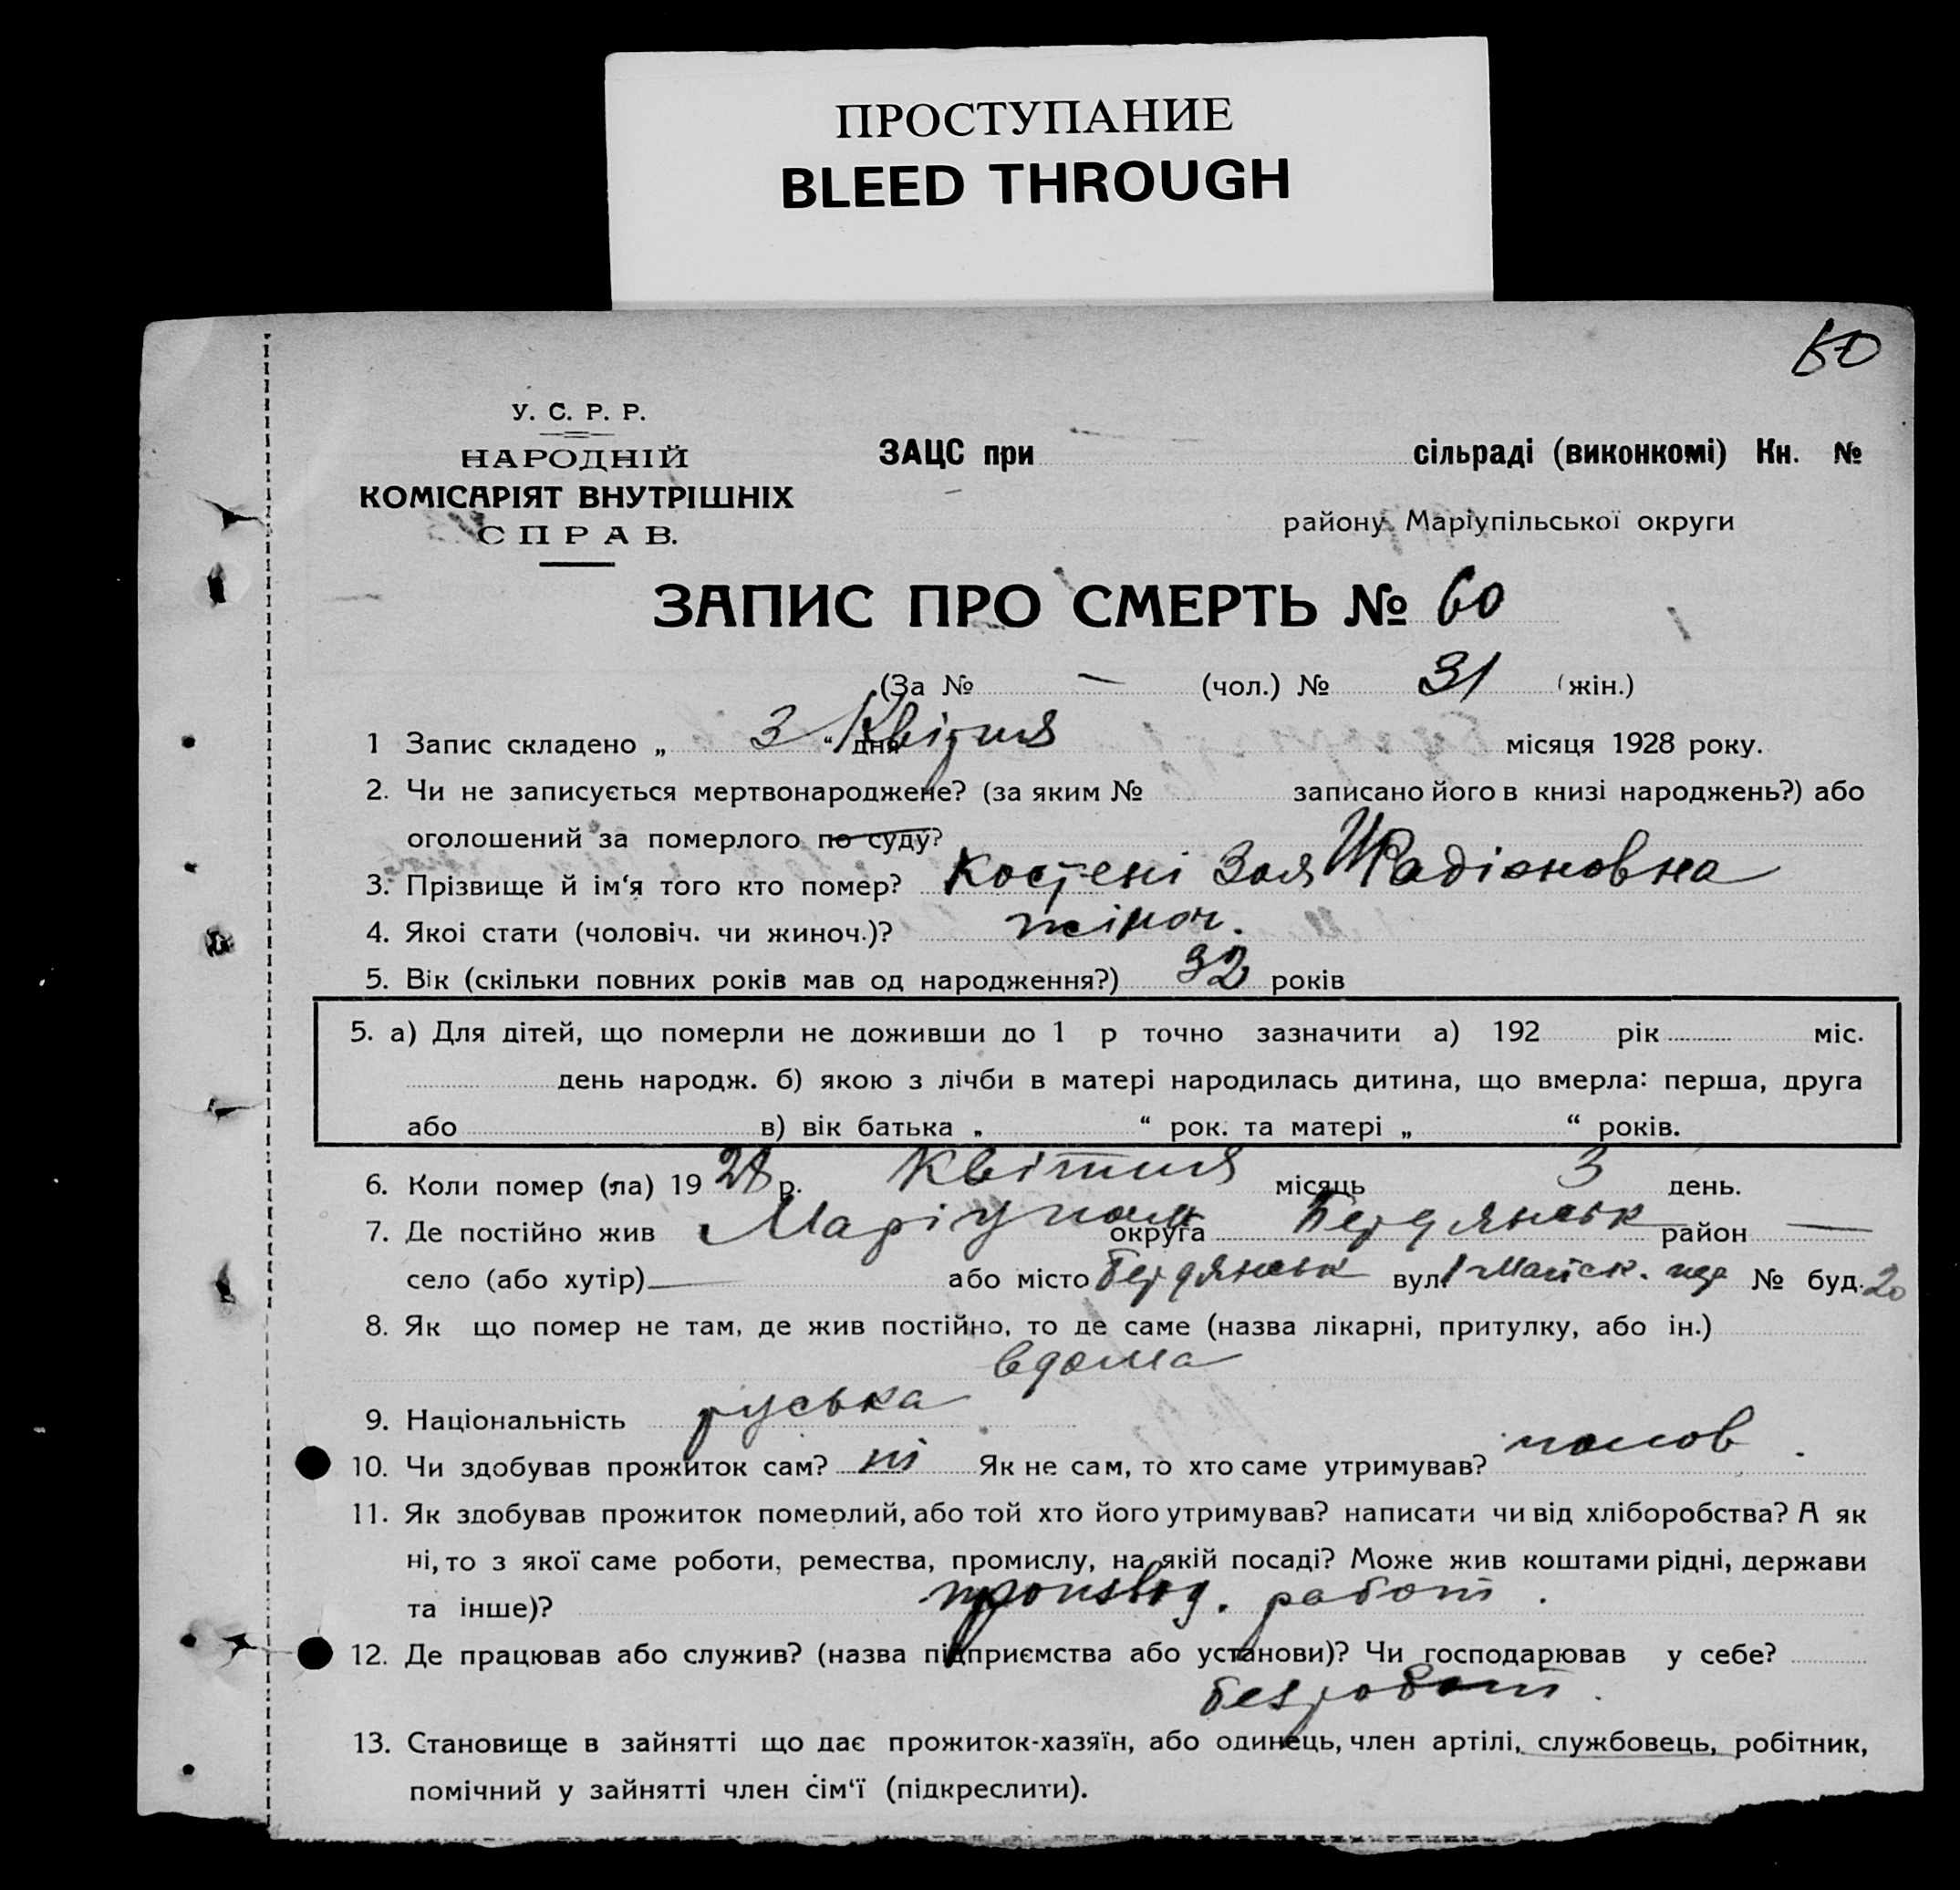 ПРОСТУПАНИЕ
BLEED THROUGH
60
У. С. Р. Р.
НАРОДНІЙ
КОМІСАРІЯТ ВНУТРІШНІХ
СПРАВ.
ЗАЦС при сільраді (виконкомі) Кн. №
району Маріупільської округи
ЗАПИС ПРО СМЕРТЬ № 60
(За № — (чол.) № 31 (жін.)
1 Запис складено „ 3 “ дня Квітня місяця 1928 року.
2. Чи не записується мертвонароджене? (за яким № записано його в книзі народжень?) або
оголошений за померлого по суду?
3. Прізвище й ім‘я того кто помер? Костені Зоя Радіоновна
4. Якоі стати (чоловіч. чи жиноч.)? жіноч.
5. Вік (скільки повних років мав од народження?) 32 років
5. а) Для дітей, що померли не доживши до 1 р точно зазначити а) 192 рік міс.
день народж. б) якою з лічби в матері народилась дитина, що вмерла: перша, друга
або в) вік батька „ “ рок. та матері „ “ років.
6. Коли помер (ла) 1928 р. Квітня місяць 3 день.
7. Де постійно жив Маріупол округа Бердянськ район —
село (або хутір) — або місто Бердянськ вул. 1 Майск. № буд. 20
8. Як що помер не там, де жив постійно, то де саме (назва лікарні, притулку, або ін.)
вдома
9. Національність руська
10. Чи здобував прожиток сам? ні Як не сам, то хто саме утримував? чолов.
11. Як здобував прожиток померлий, або той хто його утримував? написати чи від хліборобства? А як
ні, то з якої саме роботи, ремества, промислу, на якій посаді? Може жив коштами рідні, держави
та інше)? производ. работ.
12. Де працював або служив? (назва підприємства або установи)? Чи господарював у себе?
безробот.
13. Становище в зайнятті що дає прожиток-хазяїн, або одинець, член артілі, службовець, робітник,
помічний у зайнятті член сім‘ї (підкреслити).